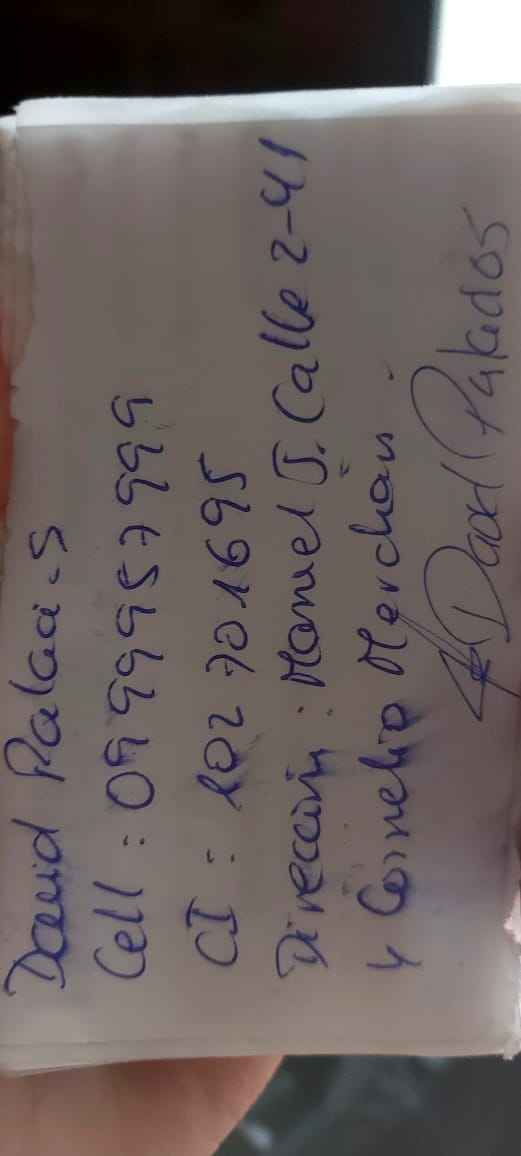 David Palaci.S
Cell : 0999957999
CI : 102701695
Direccion : Manuel J. Calle 2-41
y Cornelio Merchán.
David